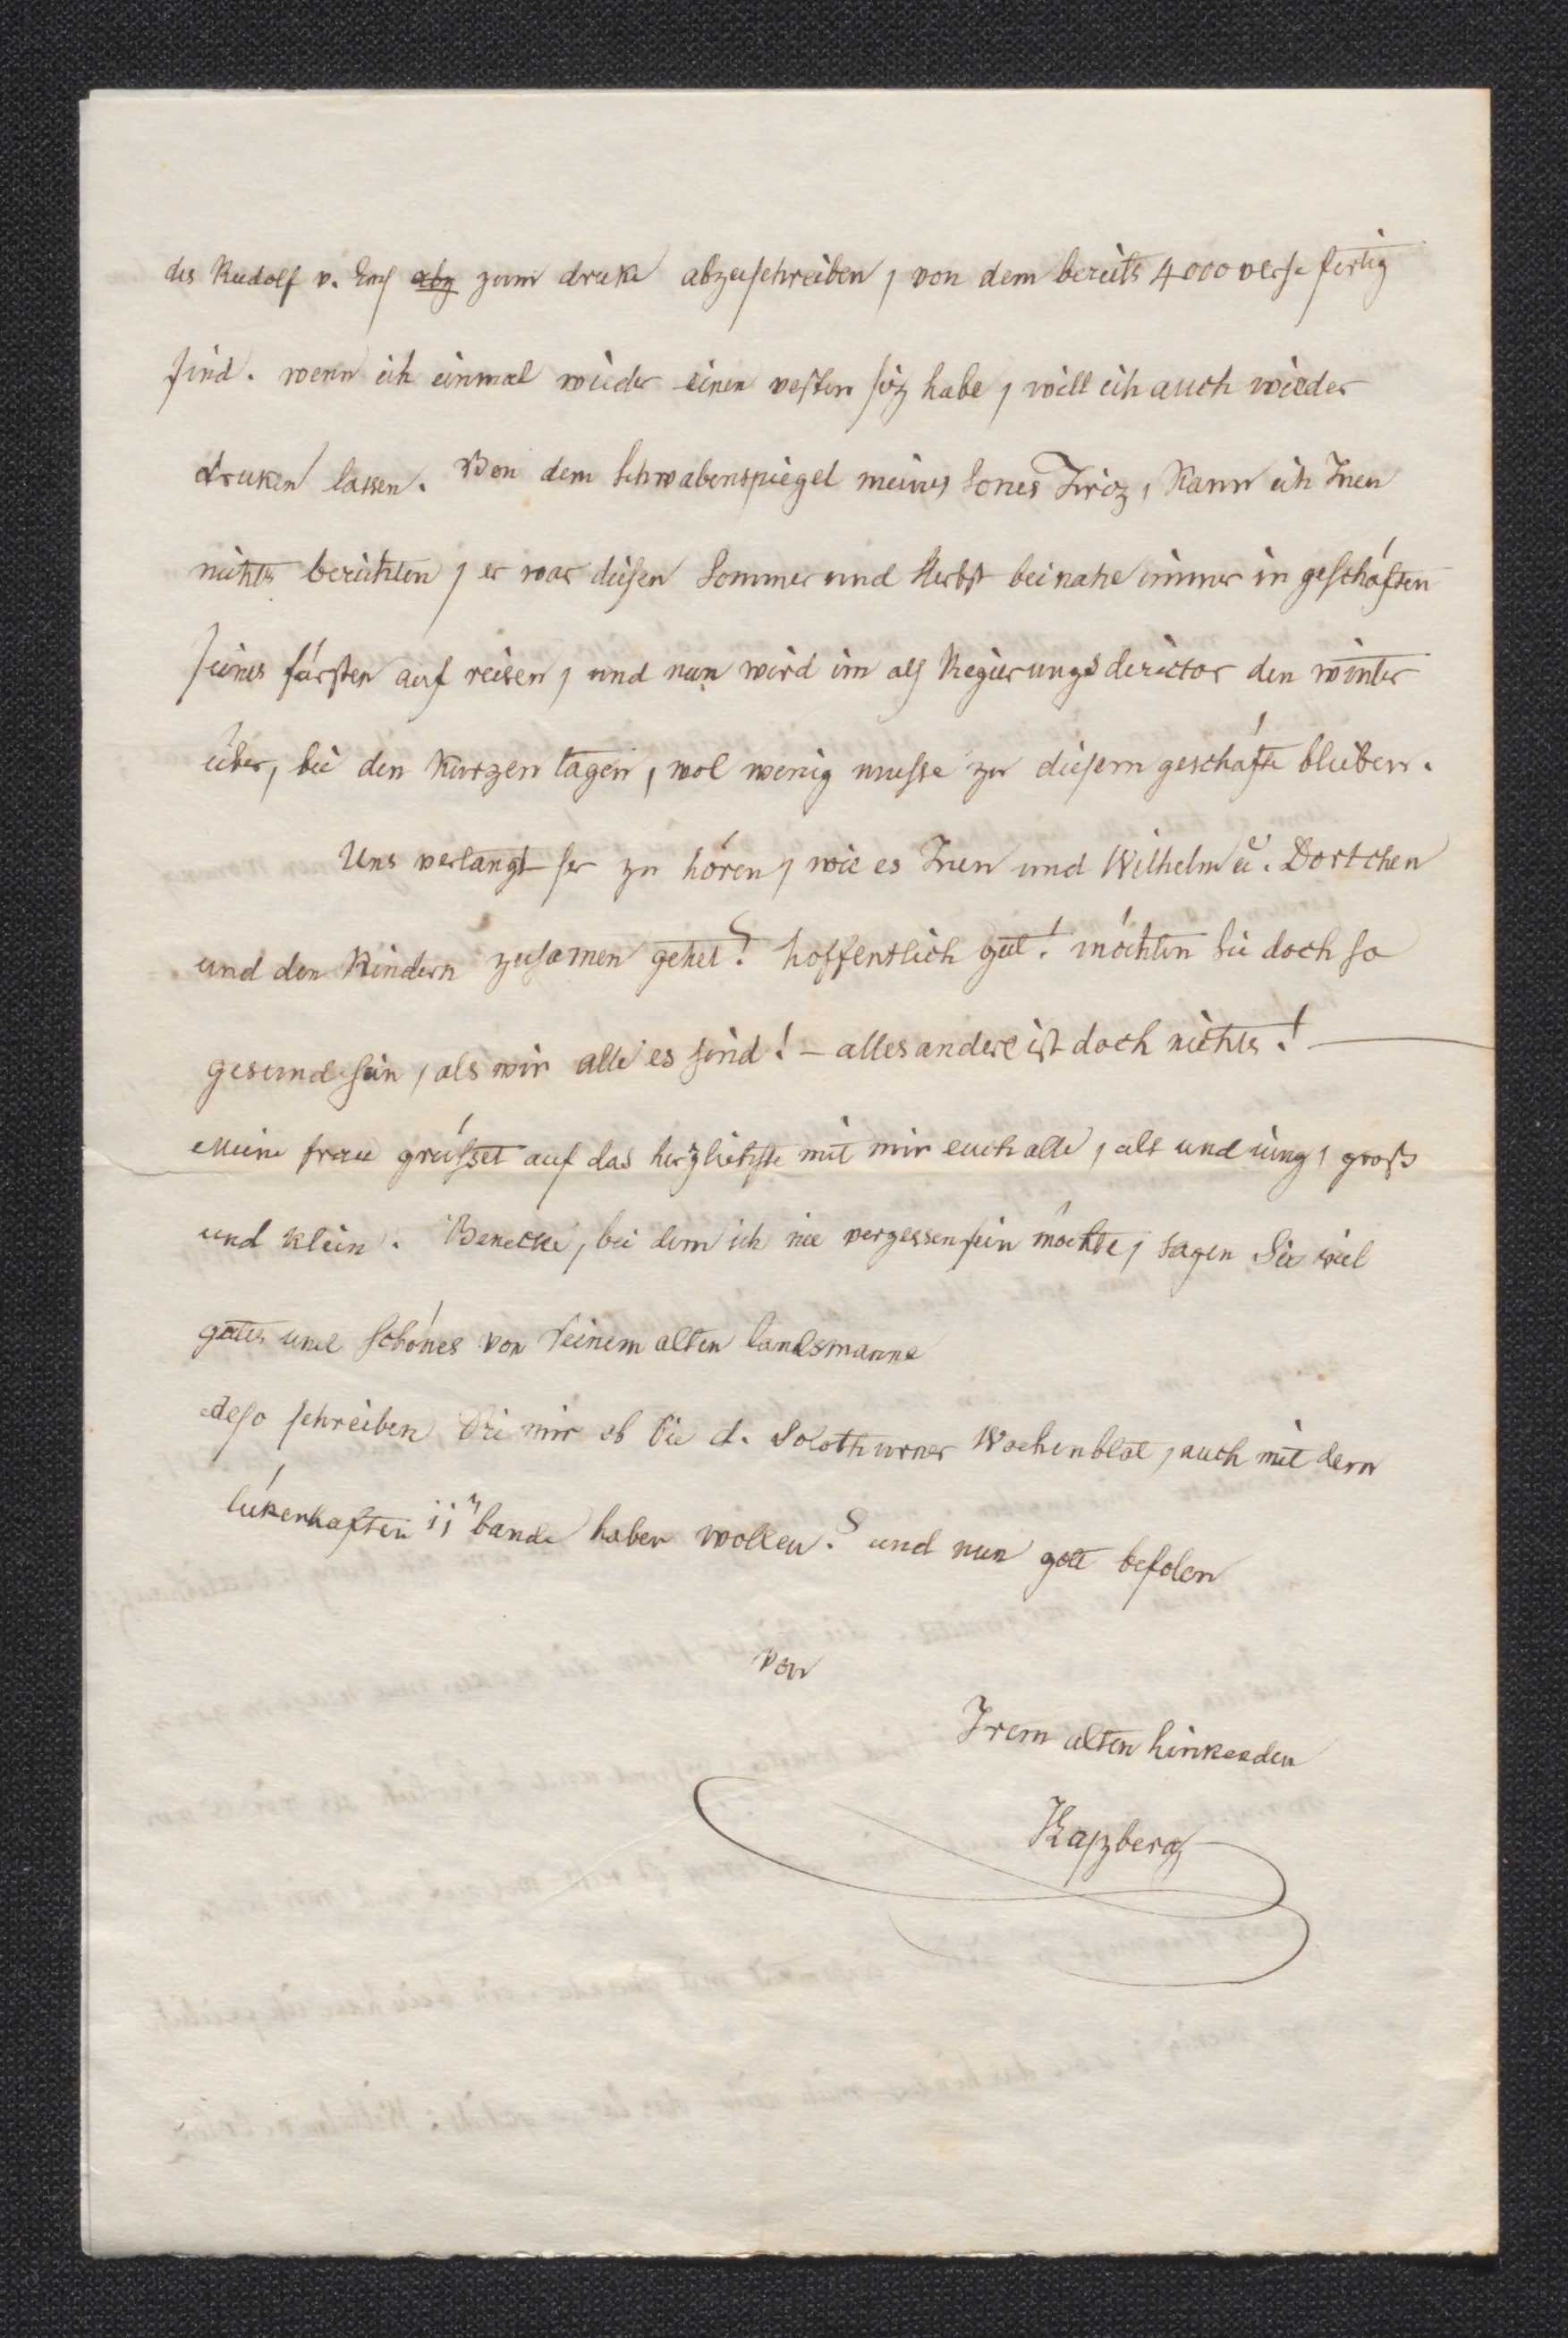 des Rudolf v. Ems abz zum druke abzuschreiben, von dem bereits 4000 verse fertig
sind. wenn ich einmal wieder einen vesten siz habe, will ich auch wieder
druken lassen. Von dem Schwabenspiegel meines Sones Friz, kann ich Inen
nichts berichten, er war diesen Sommer und Herbst beinahe immer in geschäften
seines fürsten auf reisen, und nun wird im als Regierungsdirector den winter
über, bei den kurzen tagen, wol wenig musse zu diesem geschäfte bleiben.
Uns verlangt ser zu hören, wie es Inen und Wilhelm u. Dortchen
und den Kindern zusamen gehet? hoffentlich gut! möchten Sie doch so
gesund sein, als wir alle es sind! – alles andere ist doch nichts! —
Meine frau grüsset auf das herzlichste mit mir euch alle, alt und iung, gross
und klein. Benecke, bei dem ich nie vergessen sein möchte, sagen Sie viel
gutes und schönes von seinem alten landsmanne
also schreiben Sie mir ob Sie d. Solothurner Wochenblat, auch mit dem
lükenhaften bande haben wollen? und nun gott befolen
von
Irem alten hinkenden
Laszberg